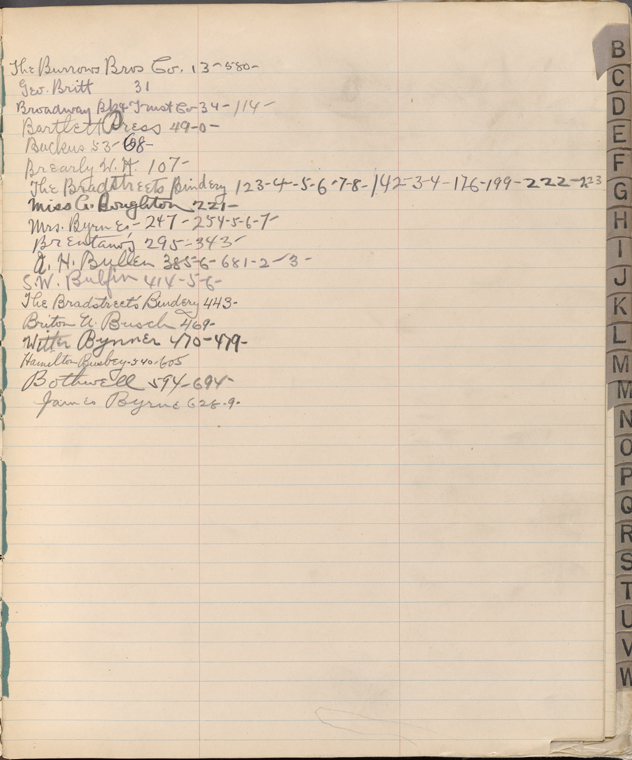 The Burrows Bros Co. 13-580-
Geo. Britt 31
Broadway Bk & Trust Co-34-114-
Bartlett Press 49-0-
Backus 53-68-
Brearly W. H. 107-
The Bradstreets Bindery 123-4-5-6-7-8-142-3-4-176-199-222-223
Miss A. Boughton 221-
Mrs. Byrnes-247-254-5-6-7-
Brentano's 295-343-
A. H. Bullen 385-6-681-2-3-
S.W. Bulfin 414-5-6-
The Bradstreets Bindery 443-
Briton N. Busch 469-
Witter Bynner 470-479-
Hamilton Busbey-540-605
Bothwell 594-694-
James Byrne 628-9-
B
C
D
E
F
G
H
I
J
K
L
M
M
N
O
P
Q
R
S
T
U
V
W